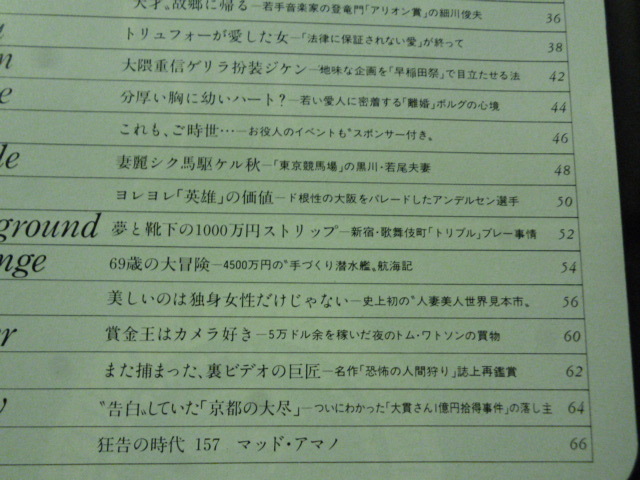 天才。故郷に帰る—若手音楽家の登竜門「アリオン賞」の細川俊夫 36
トリュフォーが愛した女—「法律に保証されない愛」が終って 38
大隈重信ゲリラ扮装ジケン—地味な企画を「早稲田祭」で目立たせる法 42
分厚い胸に幼いハート?—若い愛人に密着する「離婚」ボルグの心境 44
これも、ご時世…—お役人のイベントも〝スポンサー付き〟 46
妻麗シク馬駆ケル秋—「東京競馬場」の黒川・若尾夫妻 48
ヨレヨレ「英雄」の価値—ド根性の大阪をパレードしたアンデルセン選手 50
ground 夢と靴下の1000万円ストリップ—新宿・歌舞伎町「トリプル」プレー事情 52
nge 69歳の大冒険—4500万円の〝手づくり潜水艦〟航海記 54
美しいのは独身女性だけじゃない—史上初の〝人妻美人世界見本市〟 56
賞金王はカメラ好き—5万ドル余を稼いだ夜のトム・ワトソンの買物 60
また捕まった、裏ビデオの巨匠—名作「恐怖の人間狩り」誌上再鑑賞 62
〝告白〟していた「京都の大尽」—ついにわかった「大貫さん1億円拾得事件」の落し主 64
狂告の時代 157 マッド・アマノ 66